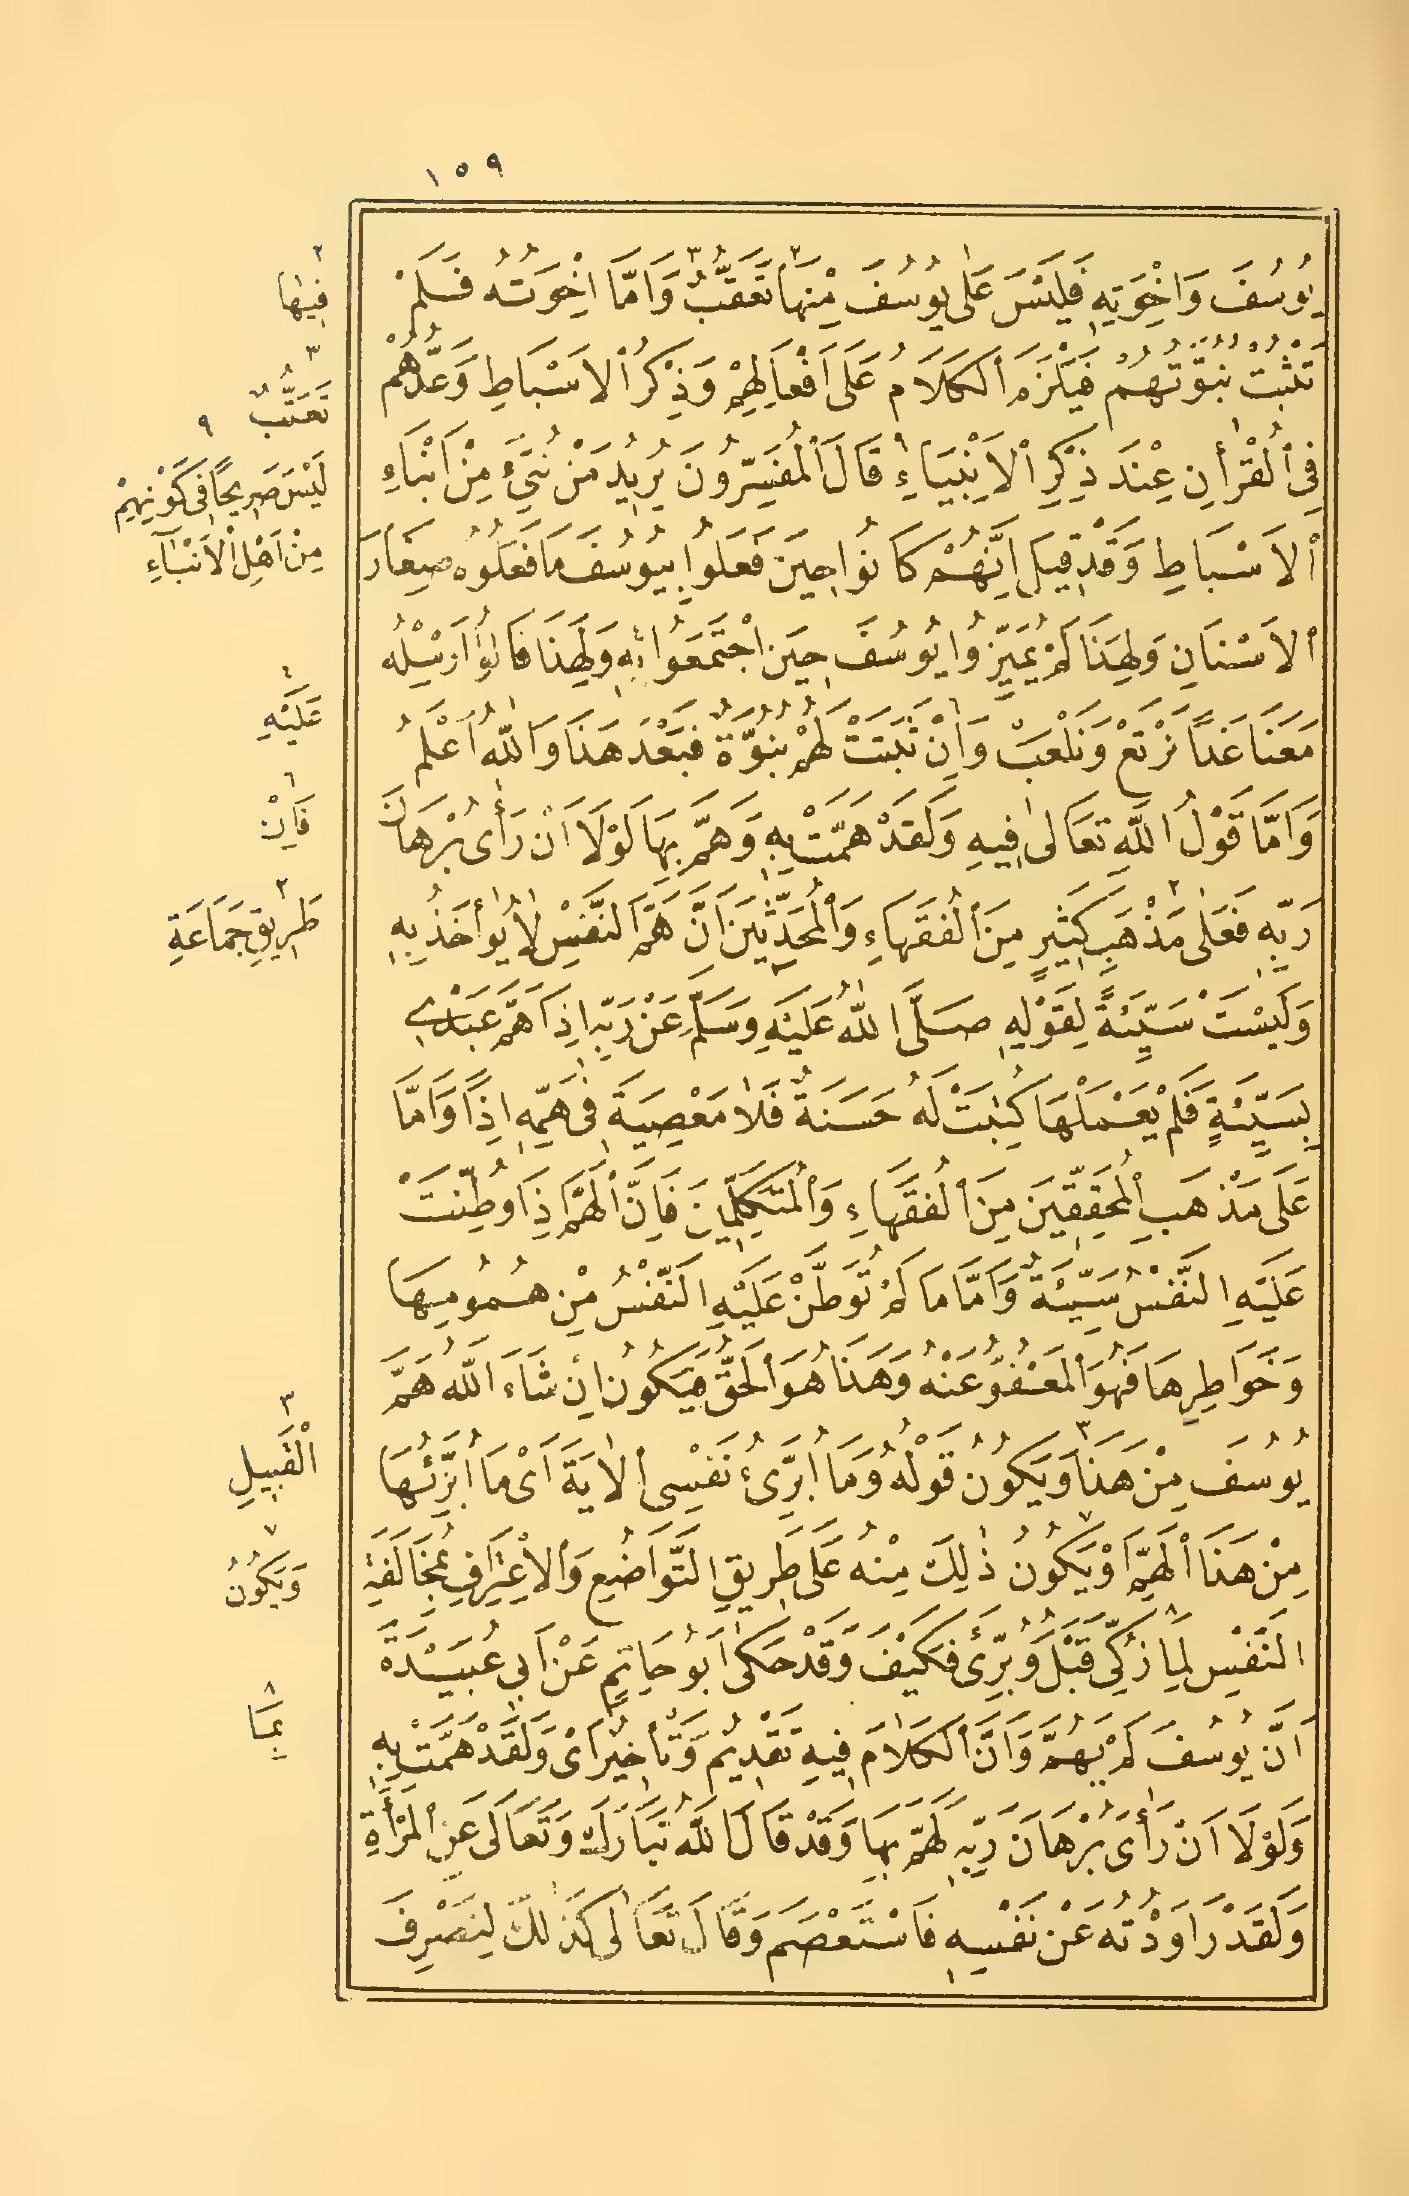 ١٥٩
يُوسُفَ وَاِخْوَتِهِ فَلَيْسَ عَلٰى يُوسُفَ مِنْهَا تَعَقُّبٌ وَاَمَّا اِخْوَتُهُ فَلَمْ
تَثْبُتْ نُبُوَّتُهُمْ فَيَلْزَمَ الْكَلَامُ عَلَى اَفْعَالِهِمْ وَذِكْرُ الْاَسْبَاطِ وَعَدُّهُمْ
فِى الْقُرْاٰنِ عِنْدَ ذِكْرِ الْاَنْبِيَاءِ قَالَ الْمُفَسِّرُونَ يُرِيدُ مَنْ نُبِّئَ مِنْ اَبْنَاءِ
الْاَسْبَاطِ وَقَدْ قِيلَ اِنَّهُمْ كَانُوا حِينَ فَعَلُوا بِيُوسُفَ مَا فَعَلُوهُ صِغَارَ
الْاَسْنَانِ وَلِهَذَا لَمْ يُمَيِّزُوا يُوسُفَ حِينَ اجْتَمَعُوا بِهِ وَلِهَذَا قَالُوا اَرْسِلْهُ
مَعَنَا غَدًا نَرْتَعْ وَنَلْعَبْ وَاِنْ ثَبَتَتْ لَهُمْ نُبُوَّةٌ فَبَعْدَ هَذَا وَاللّٰهُ اَعْلَمُ
وَاَمَّا قَوْلُ اللّٰهِ تَعَالٰى فِيهِ وَلَقَدْ هَمَّتْ بِهِ وَهَمَّ بِهَا لَوْلَا اَنْ رَأٰى بُرْهَانَ
رَبِّهِ فَعَلٰى مَذْهَبِ كَثِيرٍ مِنَ الْفُقَهَاءِ وَالْمُحَدِّثِينَ اَنَّ هَمَّ النَّفْسِ لَا يُؤَاخَذُ بِهِ
وَلَيْسَتْ سَيِّئَةً لِقَوْلِهِ صَلَّى اللّٰهُ عَلَيْهِ وَسَلَّمَ عَنْ رَبِّهِ اِذَا هَمَّ عَبْدِى
بِسَيِّئَةٍ فَلَمْ يَعْمَلْهَا كُتِبَتْ لَهُ حَسَنَةٌ فَلَا مَعْصِيَةَ فِى هَمِّهِ اِذًا وَاَمَّا
عَلَى مَذْهَبِ الْمُحَقِّقِينَ مِنَ الْفُقَهَاءِ وَالْمُتَكَلِّمِينَ فَاِنَّ الْهَمَّ اِذَا وُطِّنَتْ
عَلَيْهِ النَّفْسُ سَيِّئَةٌ وَاَمَّا مَا لَمْ تُوَطَّنْ عَلَيْهِ النَّفْسُ مِنْ هُمُومِهَا
وَخَوَاطِرِهَا فَهُوَ الْمَعْفُوُّ عَنْهُ وَهَذَا هُوَ الْحَقُّ فَيَكُونُ اِنْ شَاءَ اللّٰهُ هَمُّ
يُوسُفَ مِنْ هَذَا وَيَكُونُ قَوْلُهُ وَمَا اُبَرِّئُ نَفْسِى الْاٰيَةَ اَىْ مَا اُبَرِّئُهَا
مِنْ هَذَا الْهَمِّ اَوْ يَكُونُ ذٰلِكَ مِنْهُ عَلَى طَرِيقِ التَّوَاضُعِ وَالْاِعْتِرَافِ بِمُخَالَفَةِ
النَّفْسِ لِمَا زُكِّىَ قَبْلُ وَبُرِّئَ فَكَيْفَ وَقَدْ حَكٰى اَبُو حَاتِمٍ عَنْ اَبِى عُبَيْدَةَ
اَنَّ يُوسُفَ لَمْ يَهُمَّ وَاَنَّ الْكَلَامَ فِيهِ تَقْدِيمٌ وَتَأْخِيرٌ اَىْ وَلَقَدْ هَمَّتْ بِهِ
وَلَوْلَا اَنْ رَأٰى بُرْهَانَ رَبِّهِ لَهَمَّ بِهَا وَقَدْ قَالَ اللّٰهُ تَبَارَكَ وَتَعَالَى عَنِ الْمَرْأَةِ
وَلَقَدْ رَاوَدْتُهُ عَنْ نَفْسِهِ فَاسْتَعْصَمَ وَقَالَ تَعَالٰى كَذٰلِكَ لِنَصْرِفَ
٢
فِيهَا
٣
تَعَتُّبٌ
٩
لَيْسَ صَرِيحًا فِى كَوْنِهِمْ
مِنْ اَهْلِ الْاَنْبَآءِ
٤
عَلَيْهِ
٦
فَاِنْ
٢
طَرِيقِ جَمَاعَةِ
٣
الْقَبِيلِ
٧
وَيَكُونُ
٨
بِمَا